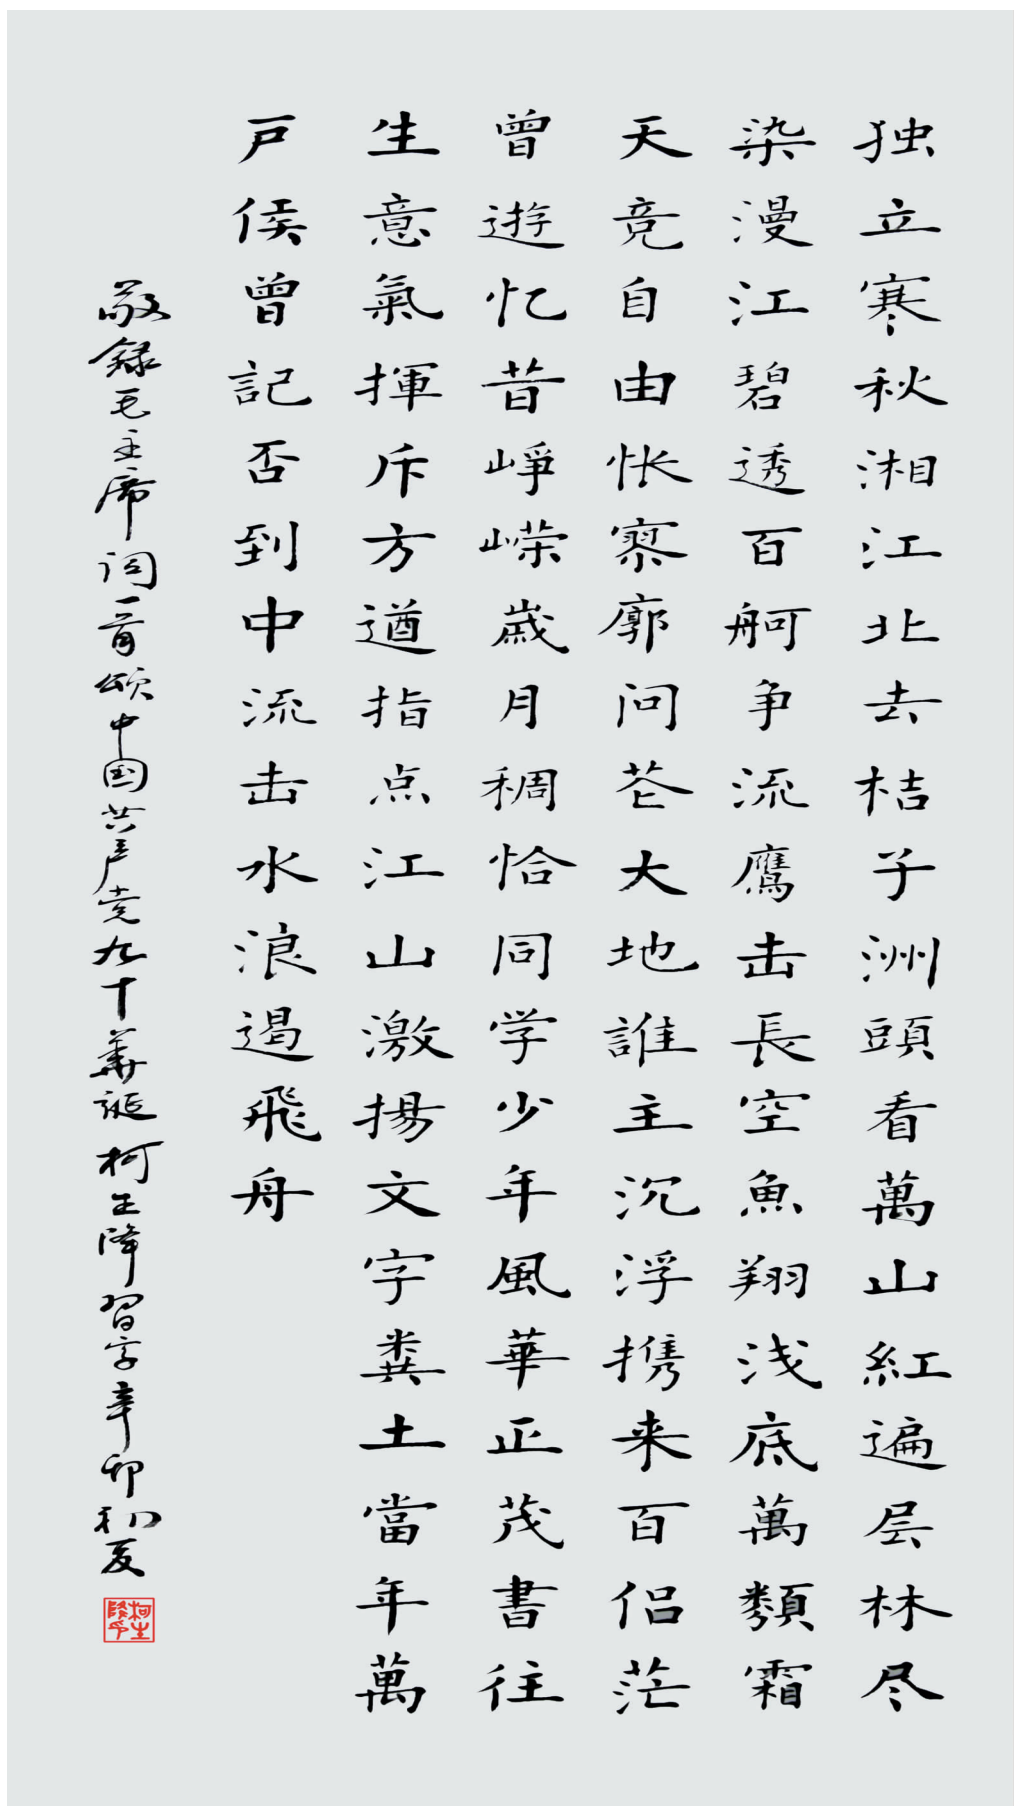 独立寒秋湘江北去桔子洲頭看萬山紅遍层林尽
染漫江碧透百舸争流鷹击長空魚翔浅底萬類霜
天竞自由怅寥廓问苍大地誰主沉浮携来百侣茫
曾遊忆昔峥嵘歳月稠恰同学少年風華正茂書往
生意氣揮斥方遒指点江山激揚文字粪土當年萬
戸侯曾記否到中流击水浪遏飛舟
敬録毛主席词一首颂中国共产党九十華誕柯生降習字辛卯初夏
柯生降印